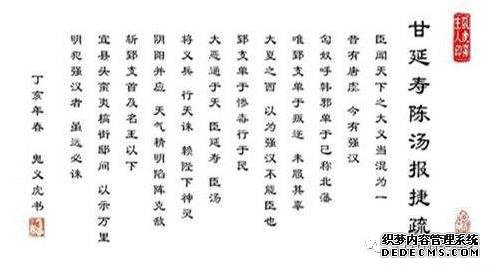 甘延寿陈汤报捷疏
臣闻天下之大义当混为一
昔有唐虞 今有强汉
匈奴呼韩邪单于已称北藩
唯郅支单于叛逆 未服其辜
大夏之西 以为强汉不能臣也
郅支单于惨毒行于民
大恶通于天 臣延寿 臣汤
将义兵 行天诛 赖陛下神灵
阴阳并应 天气精明陷阵克敌
斩郅支首及名王以下
宜县头蛮夷槁街邸间 以示万里
明犯强汉者 虽远必诛
丁亥年春 鬼义虎书
织梦内容管理系统
DEDECMS.COM